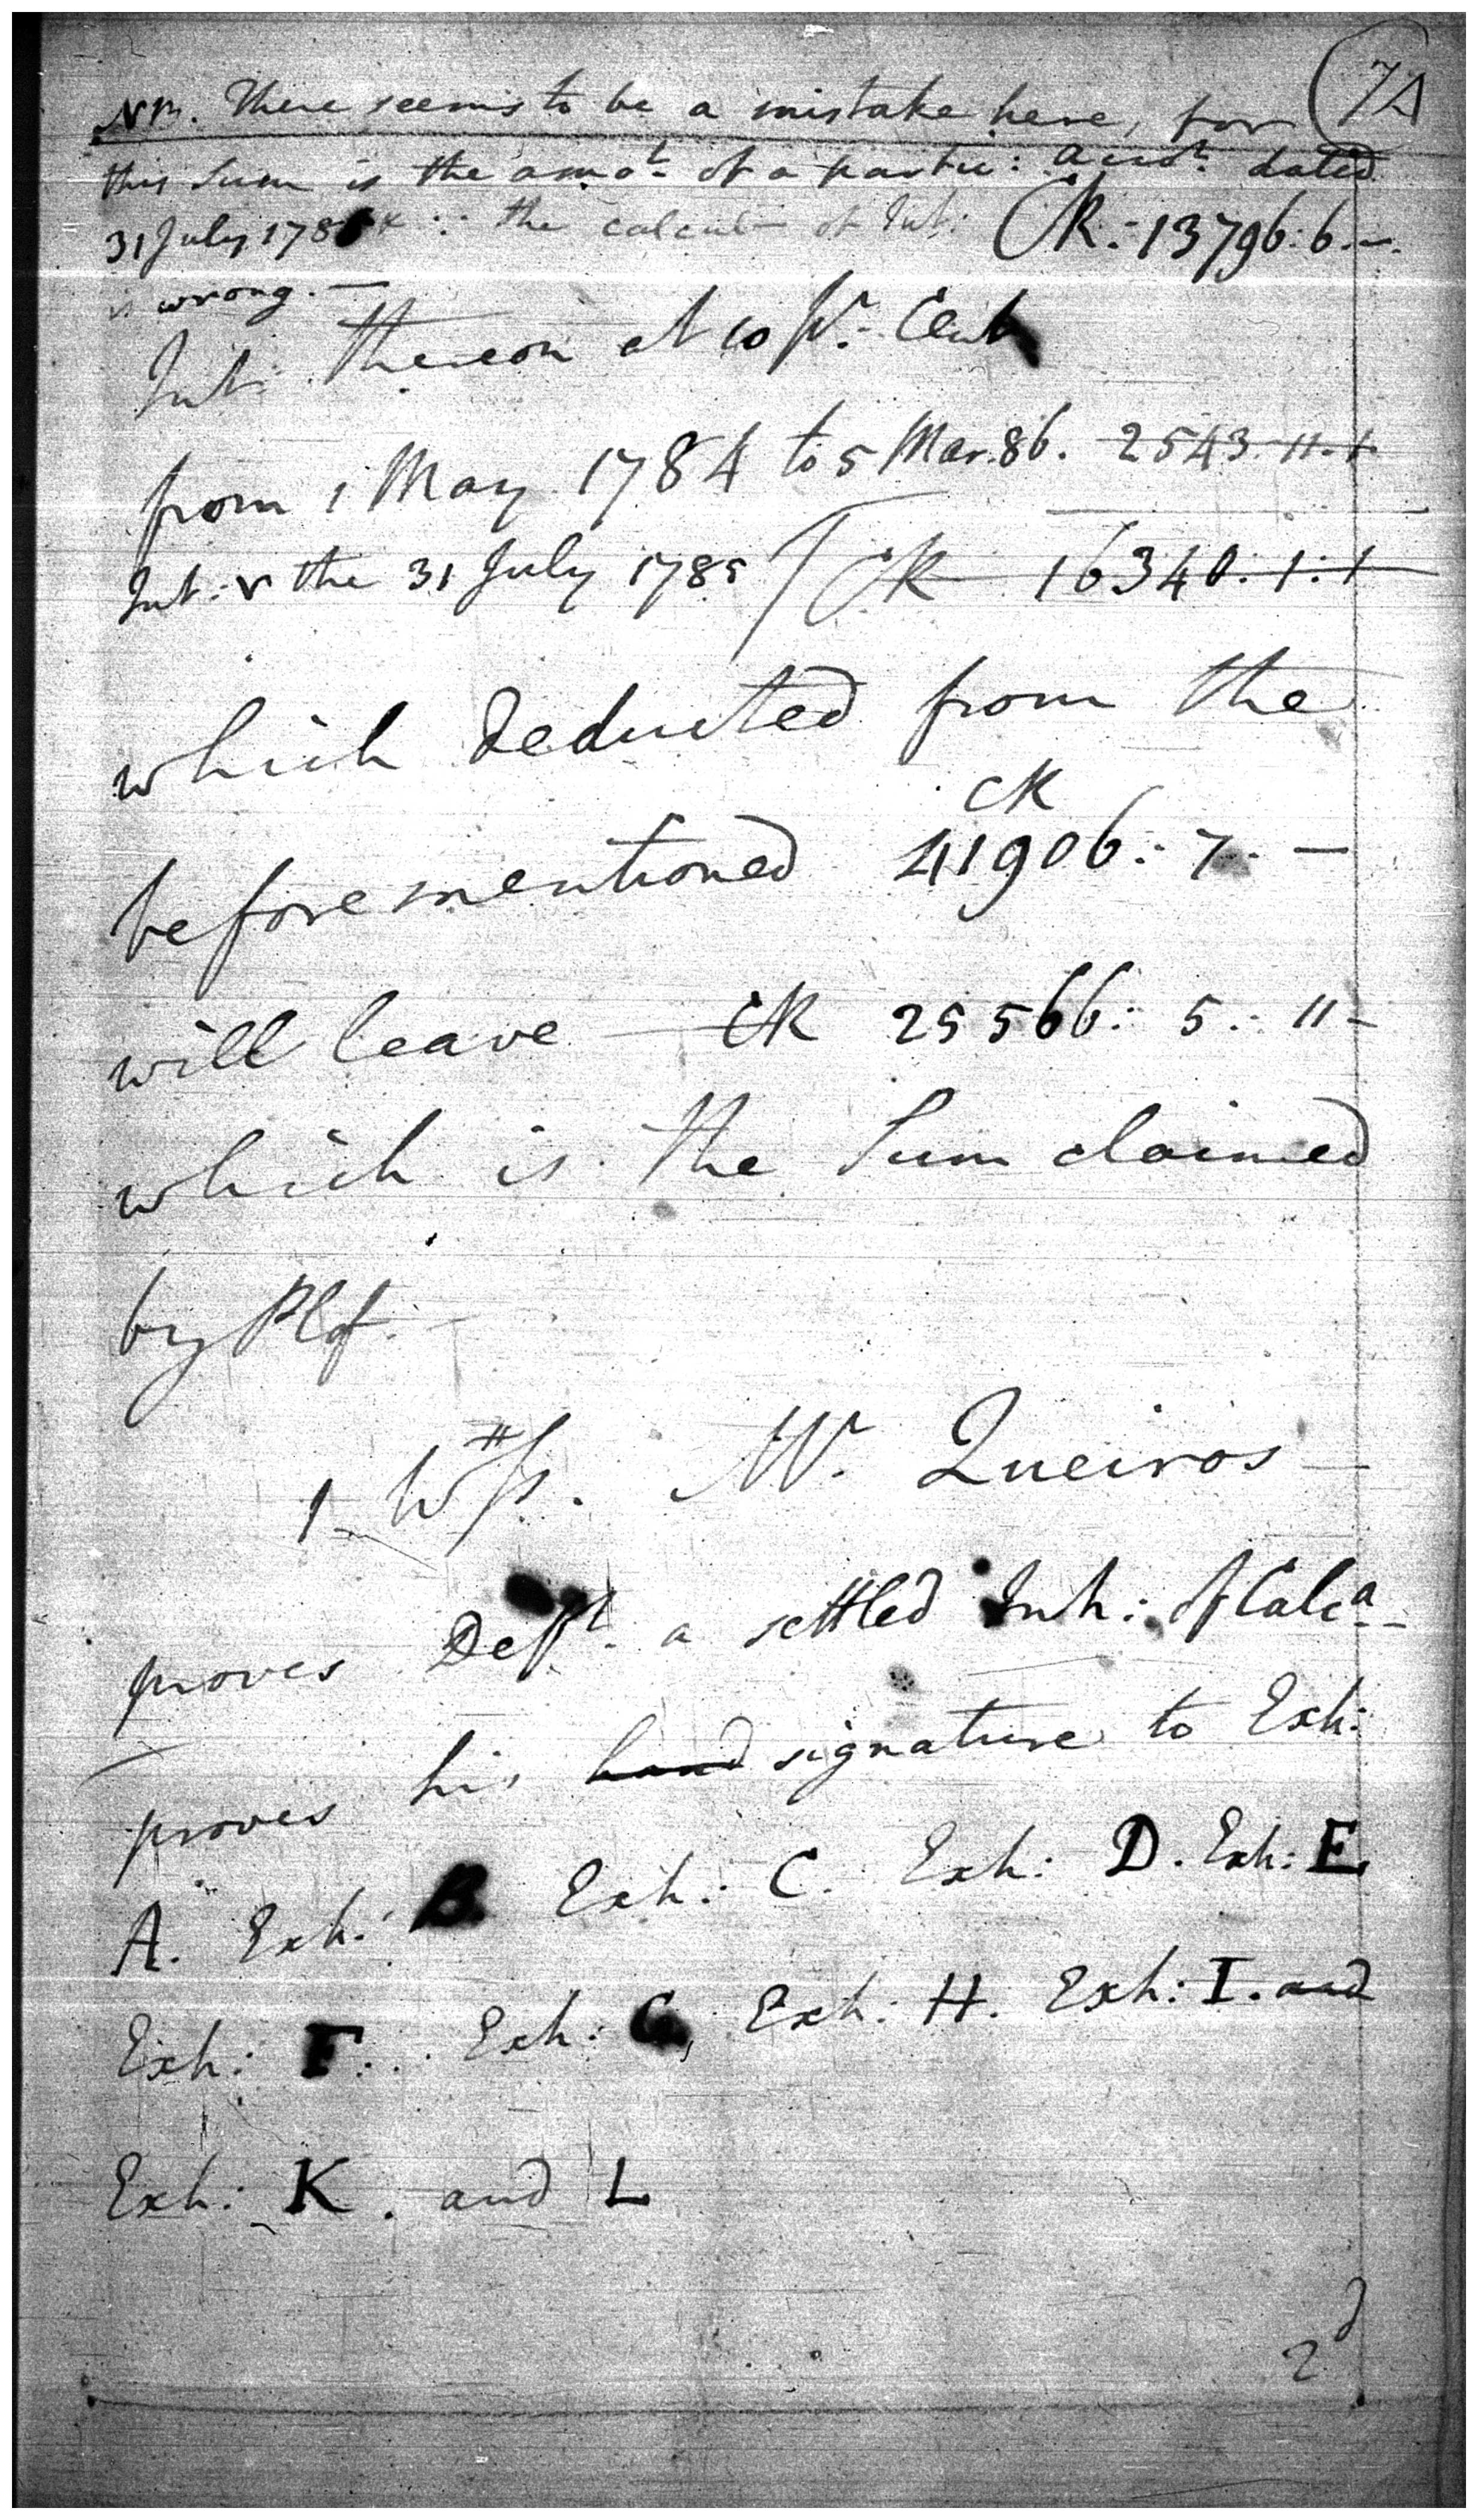 7A
NB. There seems to be a mistake here, for
this Sum is the amot. of a partic: acct. dated
31 July 178 the calcul of Int:
is wrong. —
CR: 13796: 6. —.
Int: thereon at 10 Pr. Cent
from 1 May 1784 to 5 Mar. 86. 2543. 11. 1
Int: the 31 July 1785 CR 16340: 1: 1
which deducted from the
CR
beforementioned 41906: 7. —
will leave — CR 25566: 5: 11 -
which is the Sum claimed
by Plf. —
1 Wss. Mr. Queiros —
proves Deft. a settled Inh: of Calca.
proves his hand signature to Exh:
A. Exh: B. Exh: C. Exh: D. Exh: E
Exh: F: . Exh: G, Exh: H. Exh: I. and
Exh: K. and L
2d